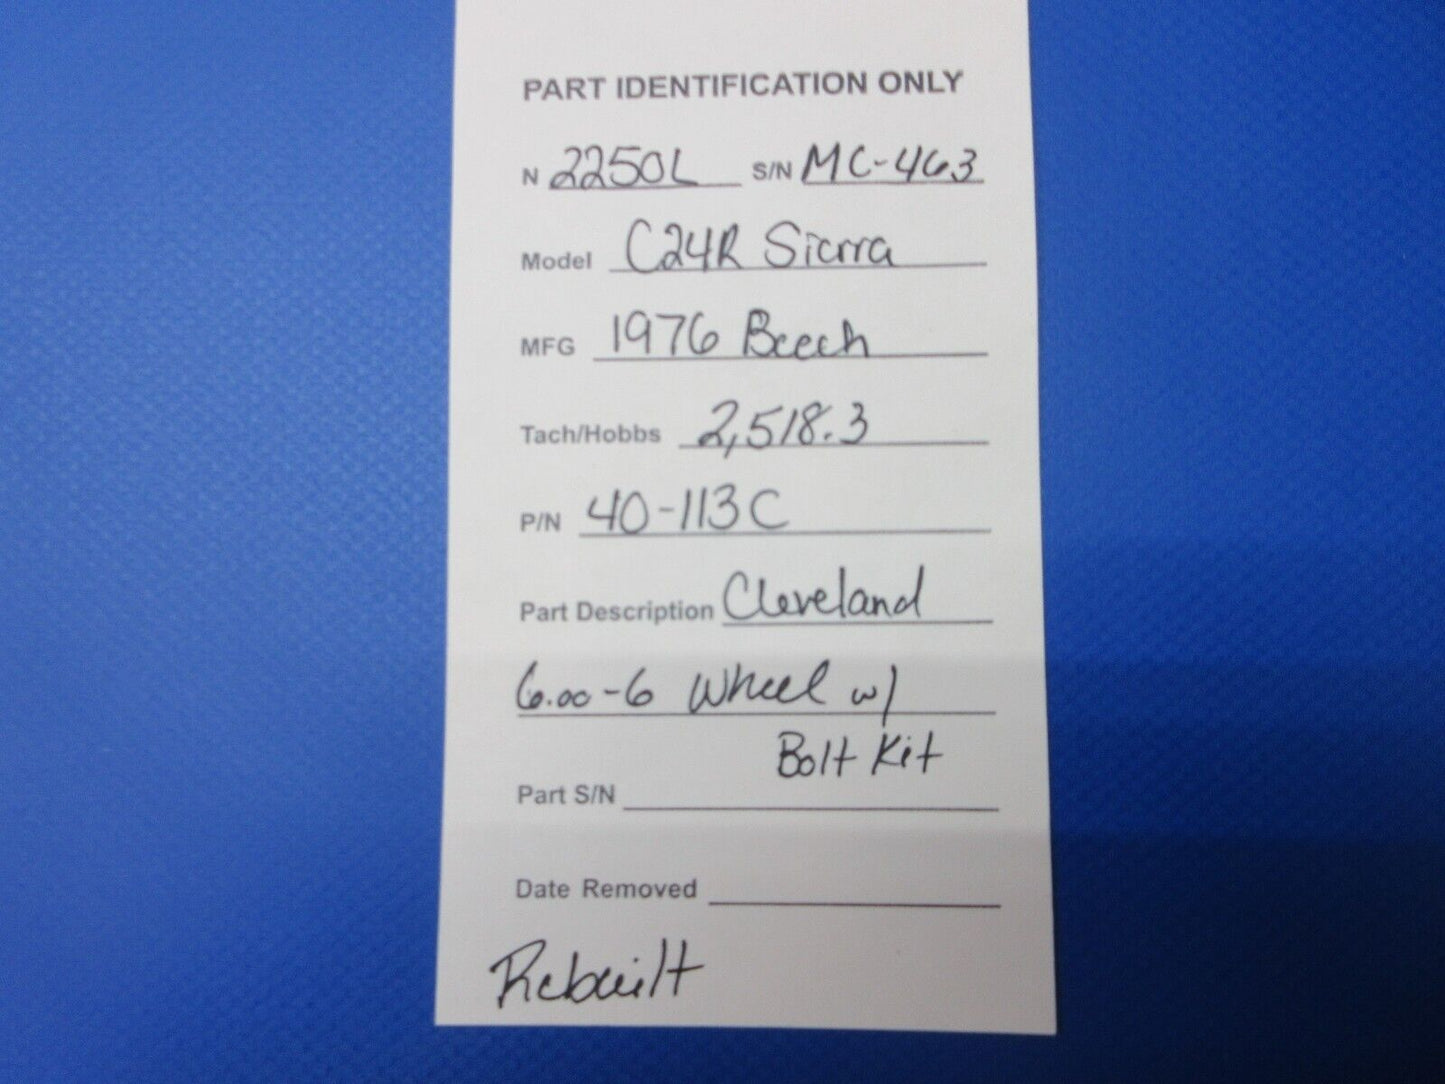 PART IDENTIFICATION ONLY
N 2250L S/N MC-463
Model C24R Sierra
MFG 1976 Beech
Tach/Hobbs 2,518.3
P/N 40-113C
Part Description Cleveland
6.00-6 Wheel w/
Bolt Kit
Part S/N
Date Removed
Rebuilt